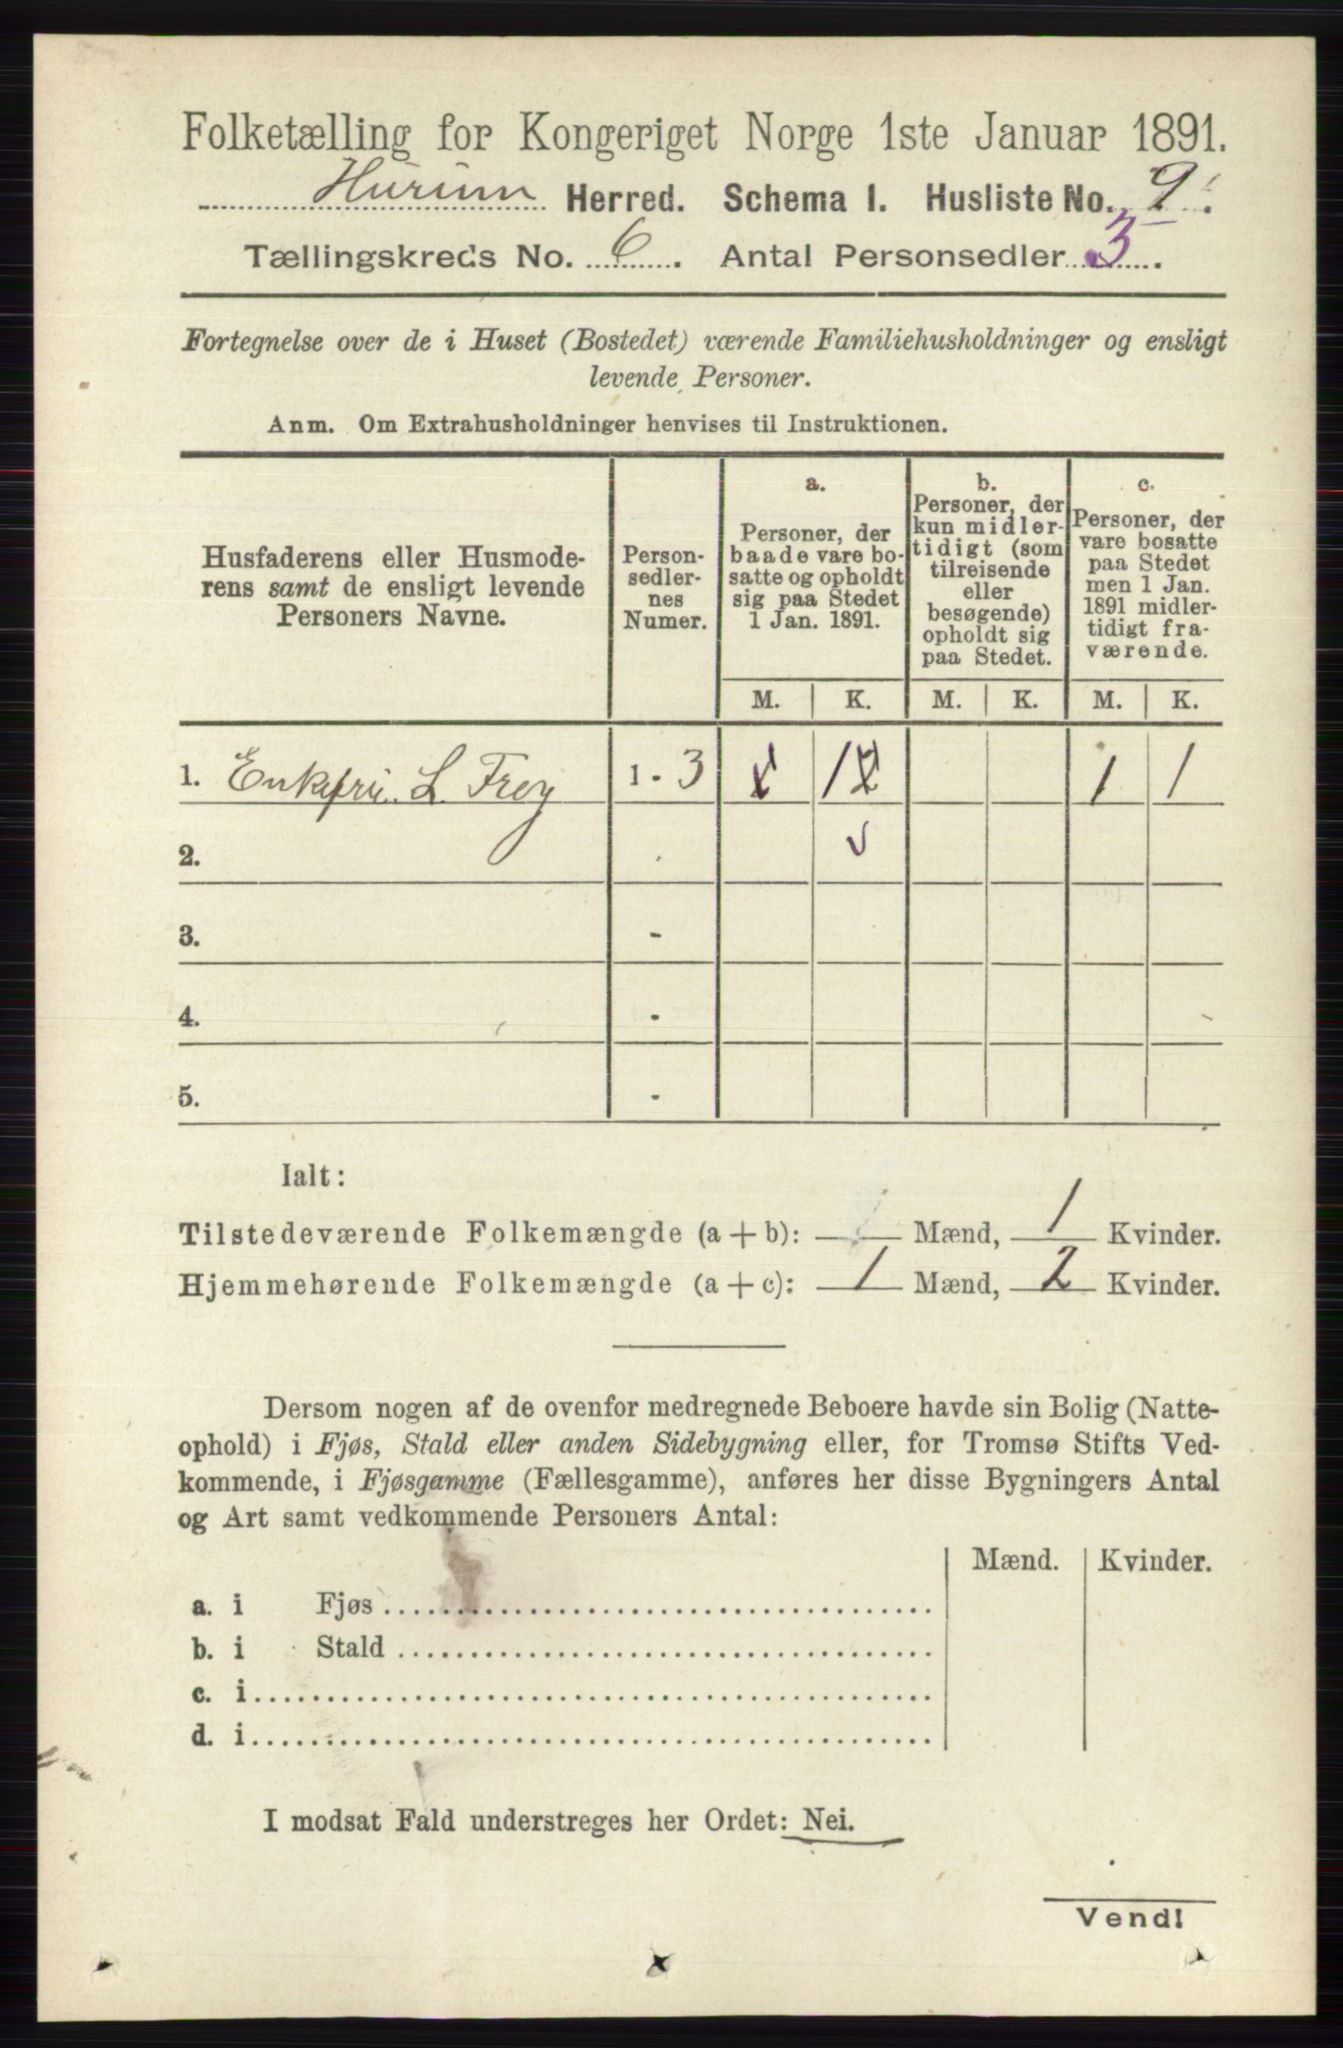 Folketælling for Kongeriget Norge 1ste Januar 1891.
Hurum Herred. Schema I. Husliste No. 9.
Tællingskreds No. 6. Antal Personsedler 3.
Fortegnelse over de i Huset (Bostedet) værende Familiehusholdninger og ensligt
levende Personer.
Anm. Om Extrahusholdninger henvises til Instruktionen.
Husfaderens eller Husmode-
rens samt de ensligt levende
Personers Navne.
Person-
sedler-
nes
Numer.
a.
Personer, der
baade vare bo-
satte og opholdt
sig paa Stedet
1 Jan. 1891.
b.
Personer, der
kun midler-
tidigt (som
tilreisende
eller
besøgende)
opholdt sig
paa Stedet.
c.
Personer, der
vare bosatte
paa Stedet
men 1 Jan.
1891 midler-
tidigt fra-
værende.
M. K. M. K. M. K.
1. Enkefru L. Frey 1 - 3 1 1 1
2.
3. -
4. -
5. -
Ialt:
Tilstedeværende Folkemængde (a + b): Mænd, 1 Kvinder.
Hjemmehørende Folkemængde (a + c): 1 Mænd, 2 Kvinder.
Dersom nogen af de ovenfor medregnede Beboere havde sin Bolig (Natte-
ophold) i Fjøs, Stald eller anden Sidebygning eller, for Tromsø Stifts Ved-
kommende, i Fjøsgamme (Fællesgamme), anføres her disse Bygningers Antal
og Art samt vedkommende Personers Antal:
Mænd. Kvinder.
a. i Fjøs
b. i Stald
c. i
d. i
I modsat Fald understreges her Ordet: Nei.
Vend!